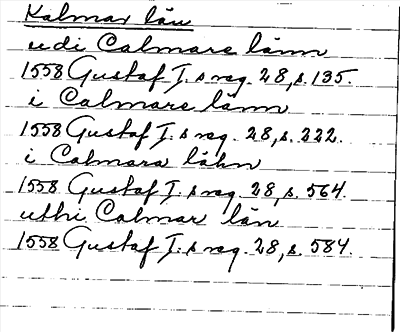 Kalmar län
udi Calmare länn
1558 Gustaf I.s reg. 28, s. 135.
i Calmare länn
1558 Gustaf I.s reg. 28, s. 222.
i Calmara lähn
1558 Gustaf I.s reg. 28, s. 564.
uthi Calmar län
1558 Gustaf I.s reg. 28, s. 584.